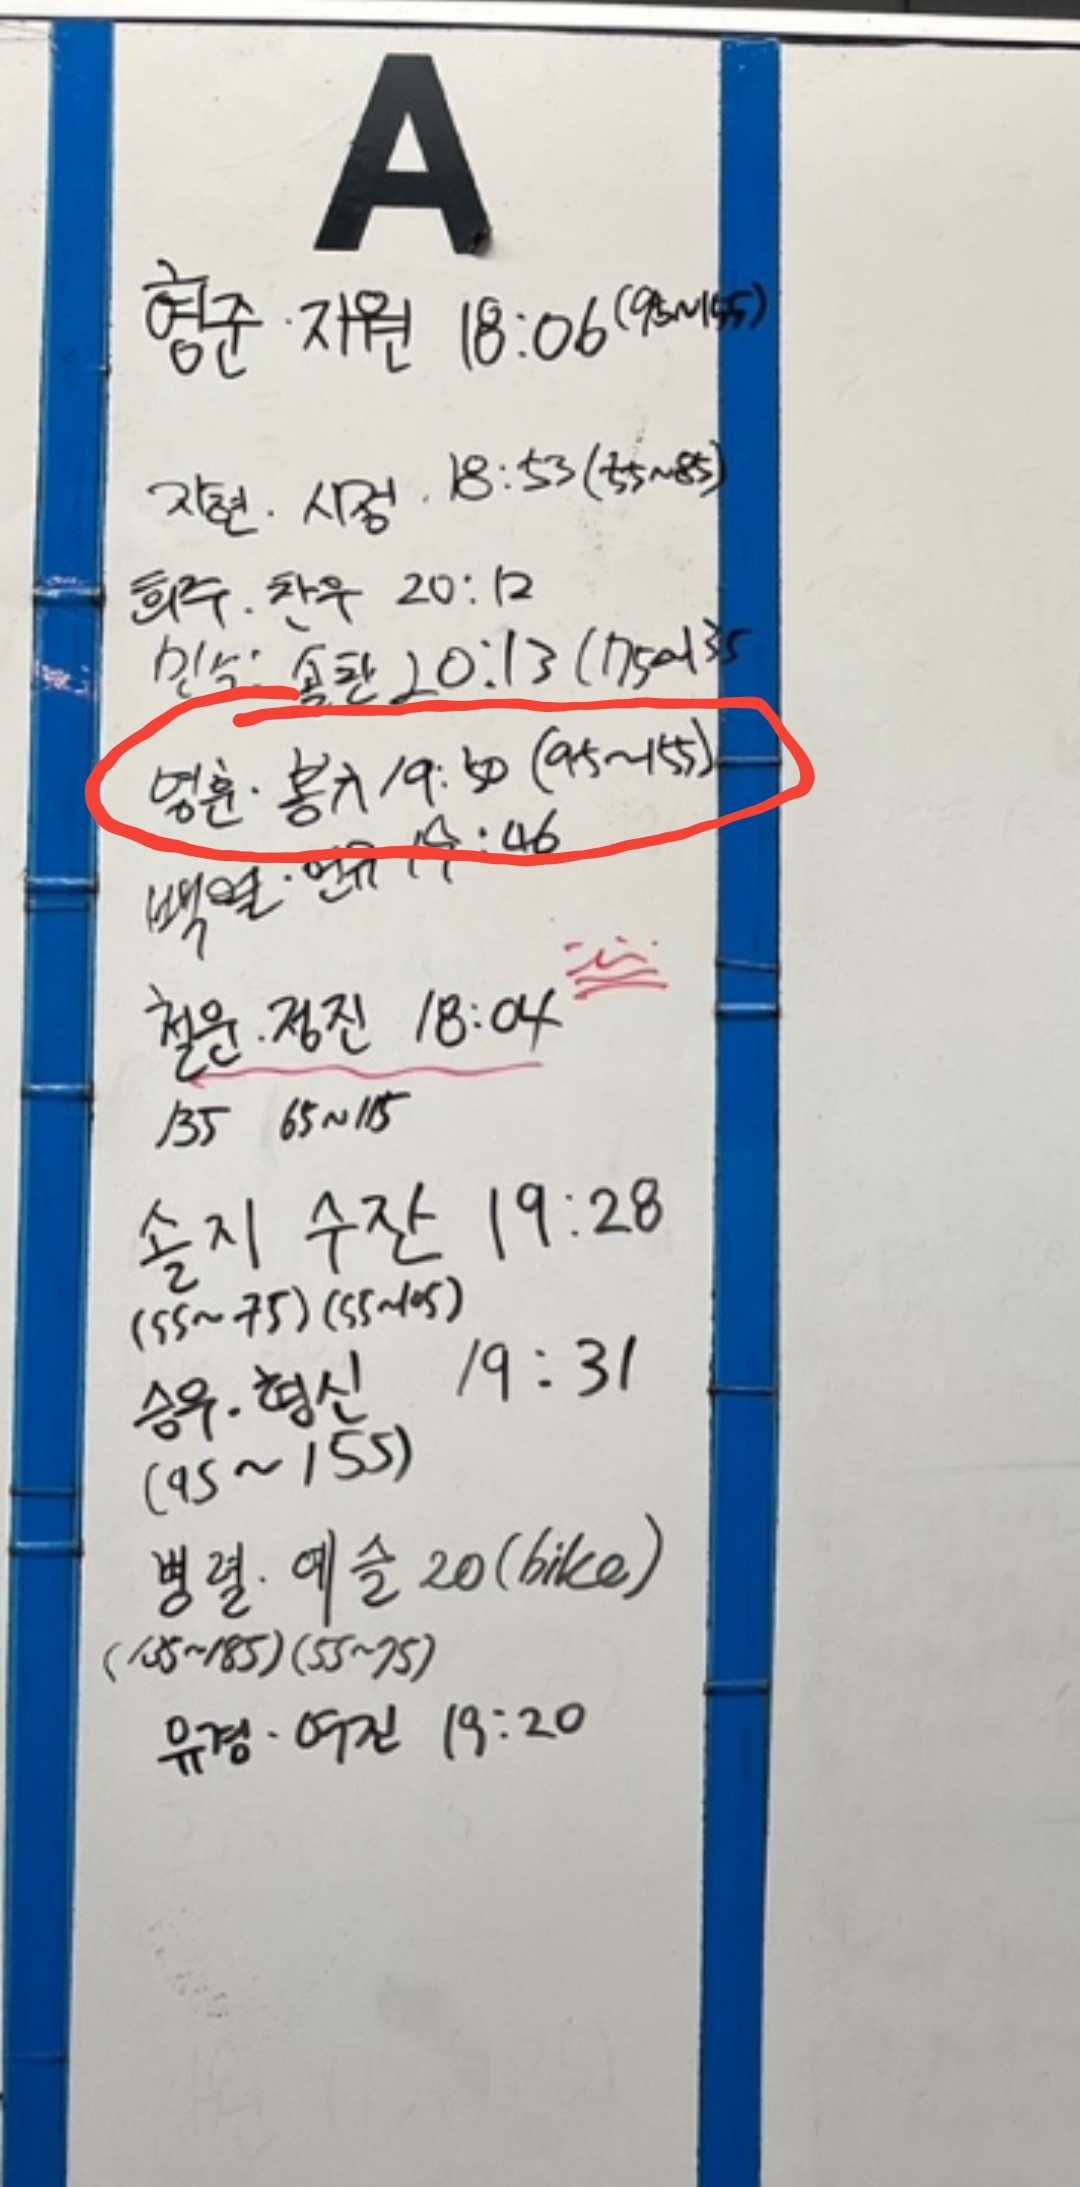 A
형준 · 지원 18:06 (95~155)
지현 · 시정 · 18:53 (55~85)
희주 · 찬우 20:12
민수 · 솔탄 20:13 (175~135
영훈 · 봉치 19:50 (95~155)
백열 · 연유 :46
철운 · 정진 18:04
135 65~115
솔지 수잔 19:28
(55~75) (55~105)
승우 · 형신 19:31
(95~155)
병렬 · 예슬 20 (bike)
(135~185) (55~75)
유경 · 여진 19:20